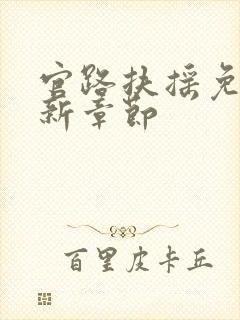 官路扶摇免
新章节
百里皮卡丘